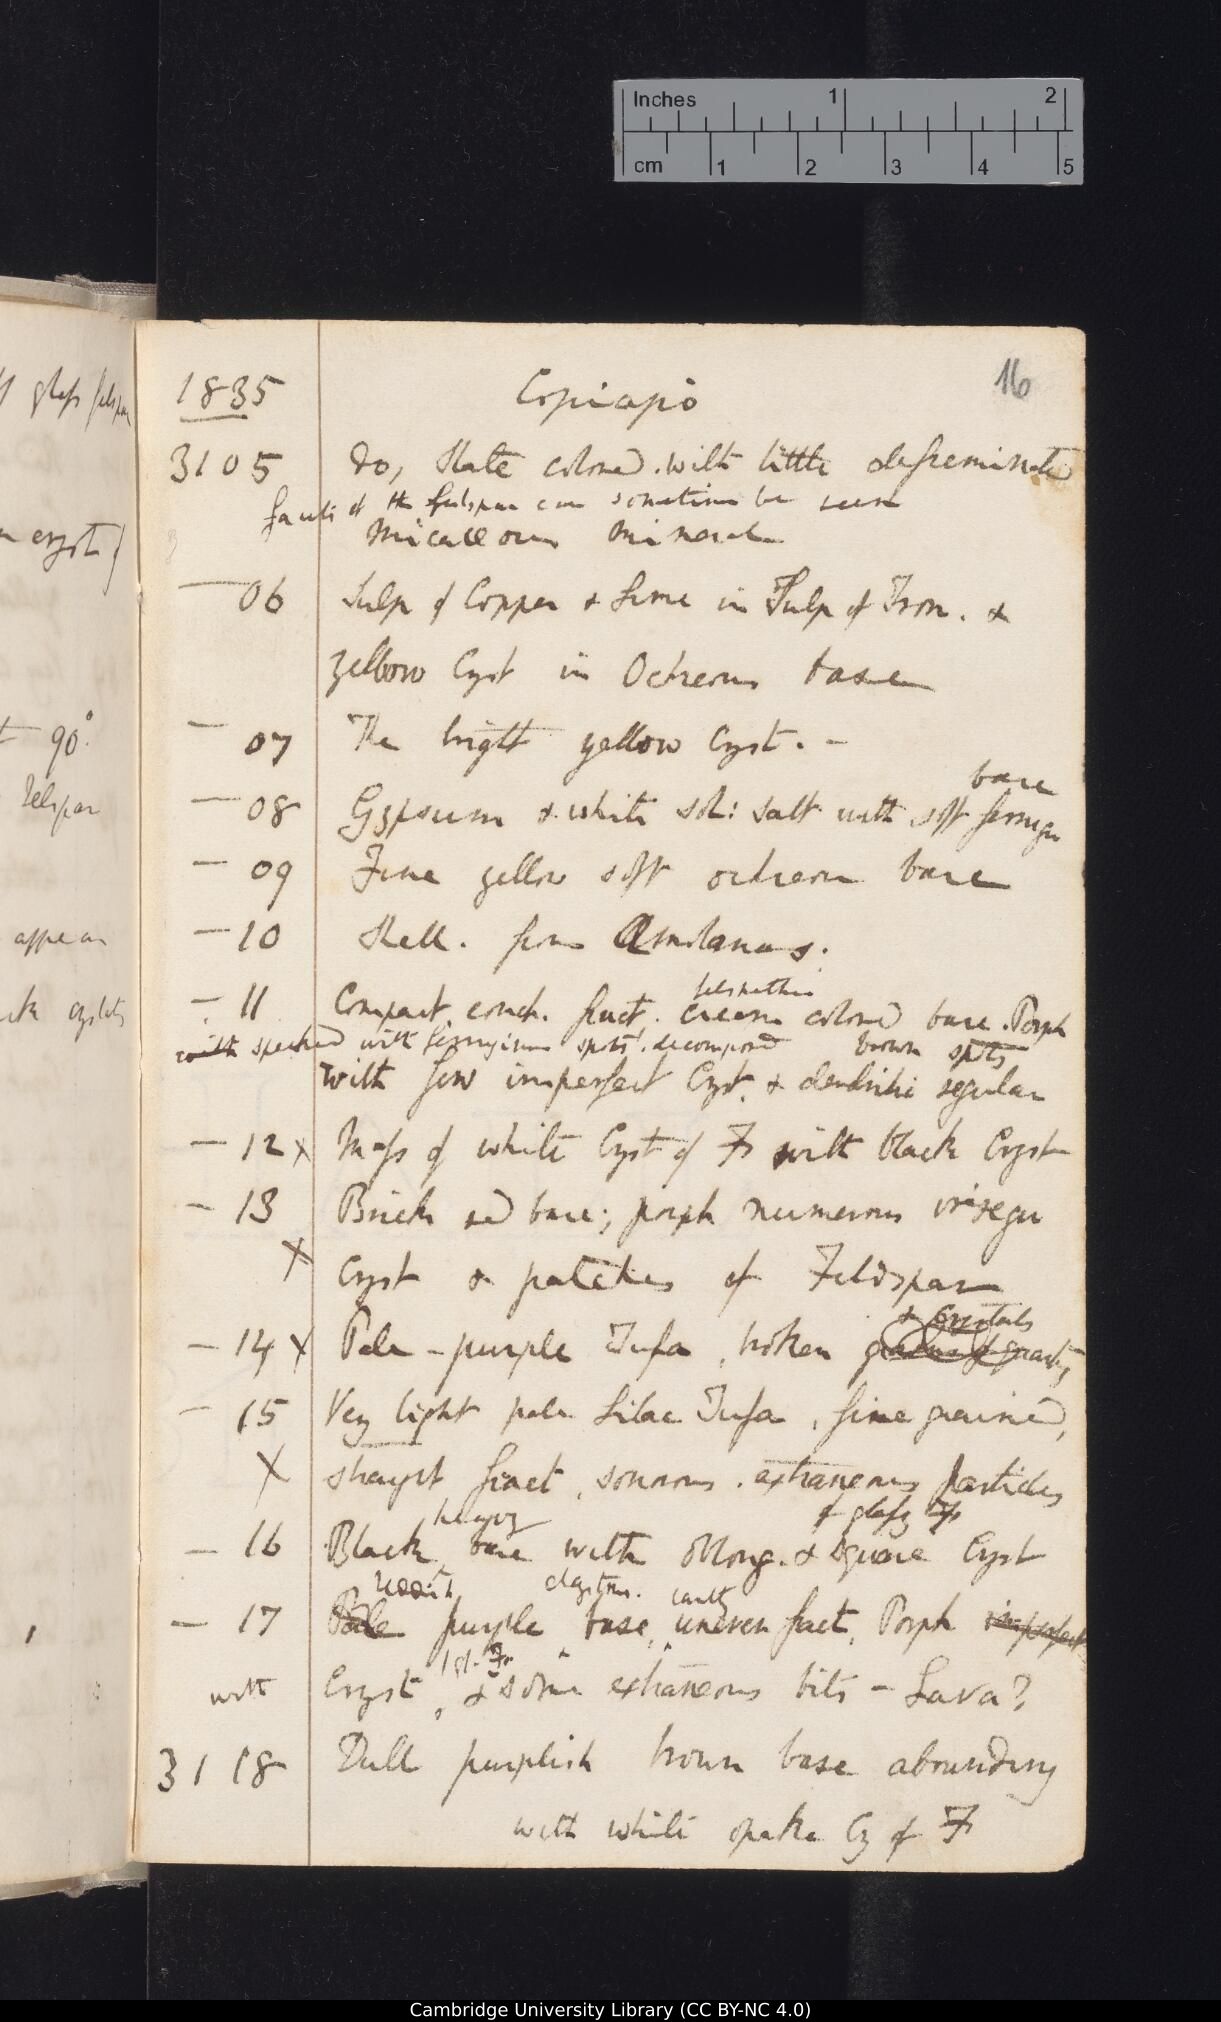 Inches 1 2
cm 1 2 3 4 5
16
1835 Copiapò
3105 Do, Slate colored. with little disseminated
faces of the feldspar can sometimes be seen
micaceous mineral
— 06 Sulp of Copper & Lime in Sulp of Iron. &
yellow Cryst in Ochreous base
— 07 The bright yellow Cryst. —
base
— 08 Gypsum & white sol: salt with soft ferrugin
— 09 Fine yellow soft ochreous base
— 10 Shell. from Amolanas.
felspathic
— 11 Compact, conch. fract. cream colored base. Porph
with specked with ferruginous spots decomposed brown spots
with few imperfect Cryst. & dendritic regular
— 12 x Mass of white Cryst of F with black Cryst
— 13 Brick red base; porph numerous irregu
x Cryst & patches of Feldspar
& Crystals
— 14 x Pale - purple Tufa, broken of quartz
— 15 Very light pale lilac Tufa, fine grained,
x straight fract, sonorous. extraneous particles
of glassy
— 16 Black base with oblong. & square Cryst
reddish earthy
— 17 Pale purple base, uneven fract, Porph imperfect
with Cryst, & some extraneous bits — Lava?
3118 Dull purplish brown base abounding
with white opake Cy of F
glass felspar
cryst
90°.
felspar
appear
crystals
Cambridge University Library (CC BY-NC 4.0)